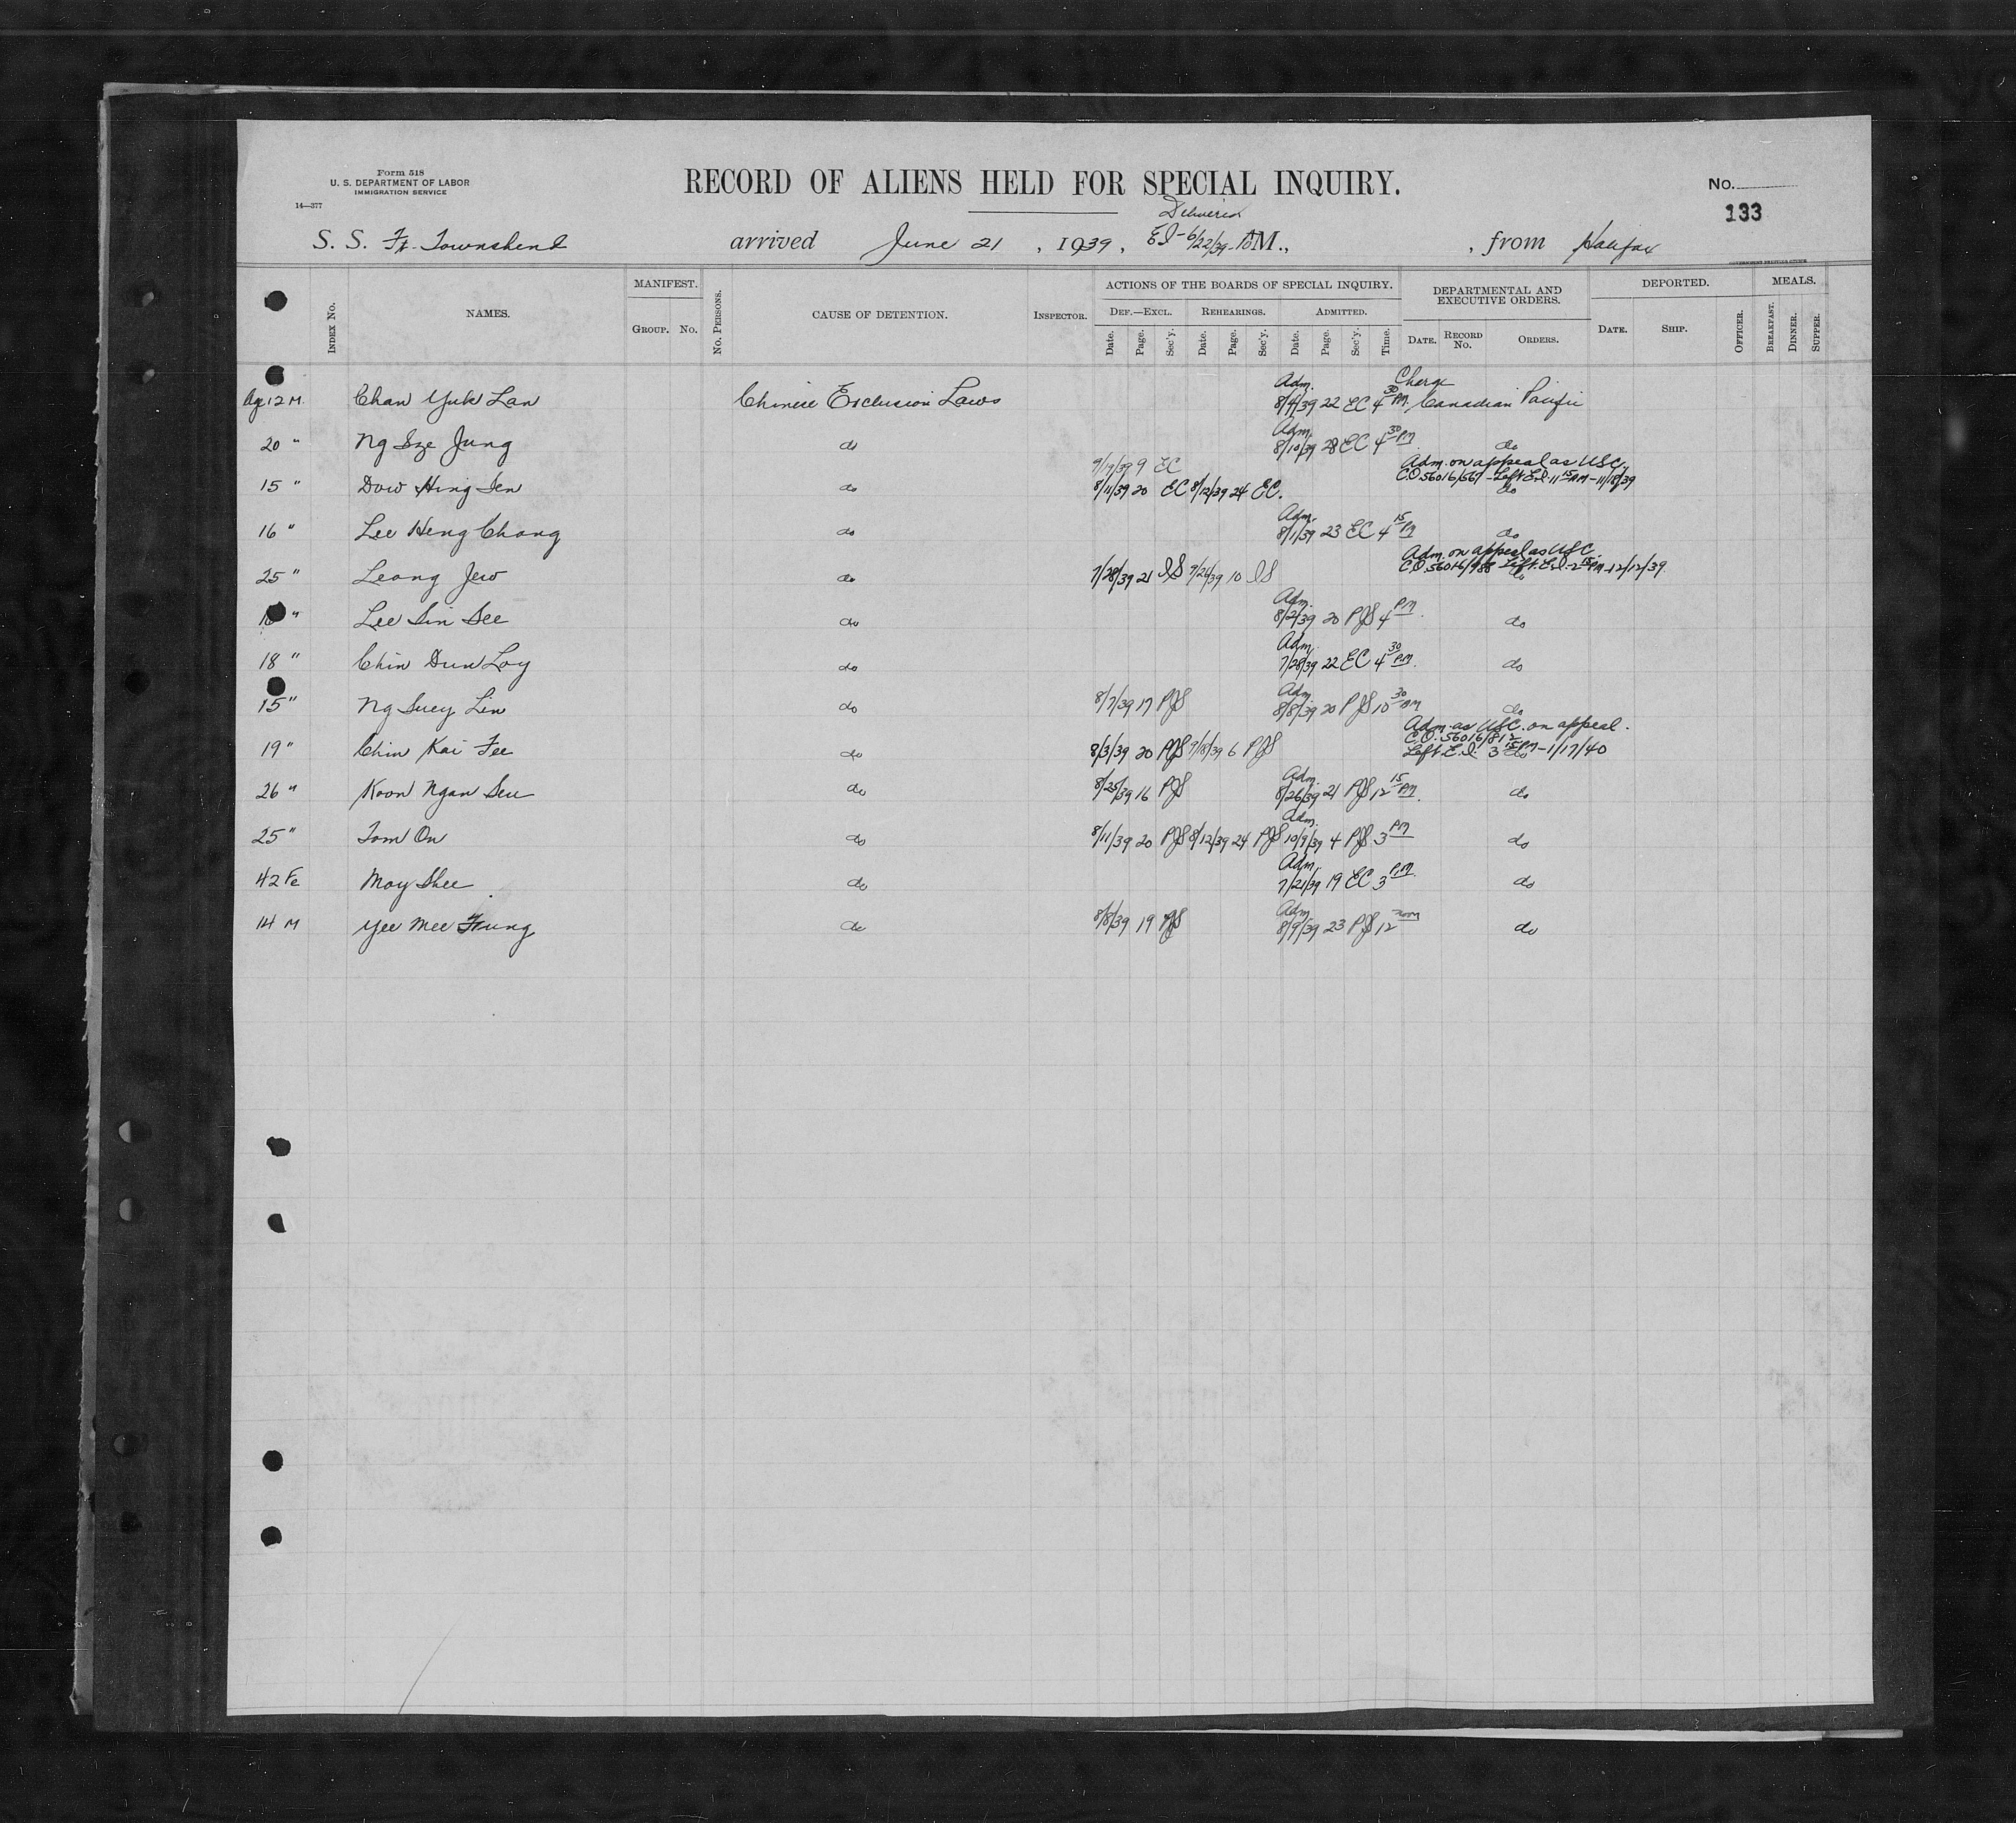 Form 518
U. S. DEPARTMENT OF LABOR
IMMIGRATION SERVICE
14—377
RECORD OF ALIENS HELD FOR SPECIAL INQUIRY.
No.
133
Delivered
S. S. Ft. Townshend arrived June 21, 1939, EI-6/22/39- M., , from Halifax
INDEX No. NAMES. MANIFEST. GROUP. No. No. PERSONS. CAUSE OF DETENTION. INSPECTOR. ACTIONS OF THE BOARDS OF SPECIAL INQUIRY. DEPARTMENTAL AND EXECUTIVE ORDERS. DEPORTED. MEALS.
DEF.—EXCL. REHEARINGS. ADMITTED.
Date. Page. Sec'y. Date. Page. Sec'y. Date. Page. Sec'y. Time. DATE. RECORD No. ORDERS. DATE. SHIP. OFFICER. BREAKFAST. DINNER. SUPPER.
Adm. Charge
Age 12 M. Chan Yuk Lan Chinese Exclusion Laws 8/4/39 22 EC 4 30 PM. Canadian Pacific
Adm.
20 " Ng Sze Jung do 8/10/39 28 EC 4 30 PM do
9/19/39 9 EC Adm. on appeal as USC.
15 " Dow Hing Sen do 8/11/39 20 EC 8/12/39 24 EC. C.O. 56016/567 - Left E.I. 11 15 AM - 11/18/39
do
Adm.
16 " Lee Heng Chong do 8/1/39 23 EC 4 15 PM do
Adm. on appeal as USC.
25 " Leong Jew do 7/28/39 21 IS 9/26/39 10 IS C.O. 56016/988 Left E.I. 2 15 PM - 12/12/39
do
Adm.
" Lee Sin See do 8/2/39 20 PJS 4 PM do
Adm.
18 " Chin Dun Loy do 7/28/39 22 EC 4 30 PM. do
Adm.
15 " Ng Suey Lin do 8/7/39 17 PJS 8/8/39 20 PJS 10 30 AM do
Adm. as USC. on appeal.
C.O. 56016/812
19 " Chin Kai Fee do 8/3/39 20 PJS 9/18/39 6 PJS Left E.I. 3 15 PM - 1/17/40
do
Adm.
26 " Koon Ngan Seu do 8/25/39 16 PJS 8/26/39 21 PJS 12 15 PM. do
Adm.
25 " Tom On do 8/11/39 20 PJS 8/12/39 24 PJS 10/9/39 4 PJS. 3 PM do
Adm.
42 Fe Moy Shee do 7/21/39 19 EC 3 PM. do
Adm.
14 M Yee Mee Fung do 8/8/39 19 PJS 8/9/39 23 PJS 12 noon do